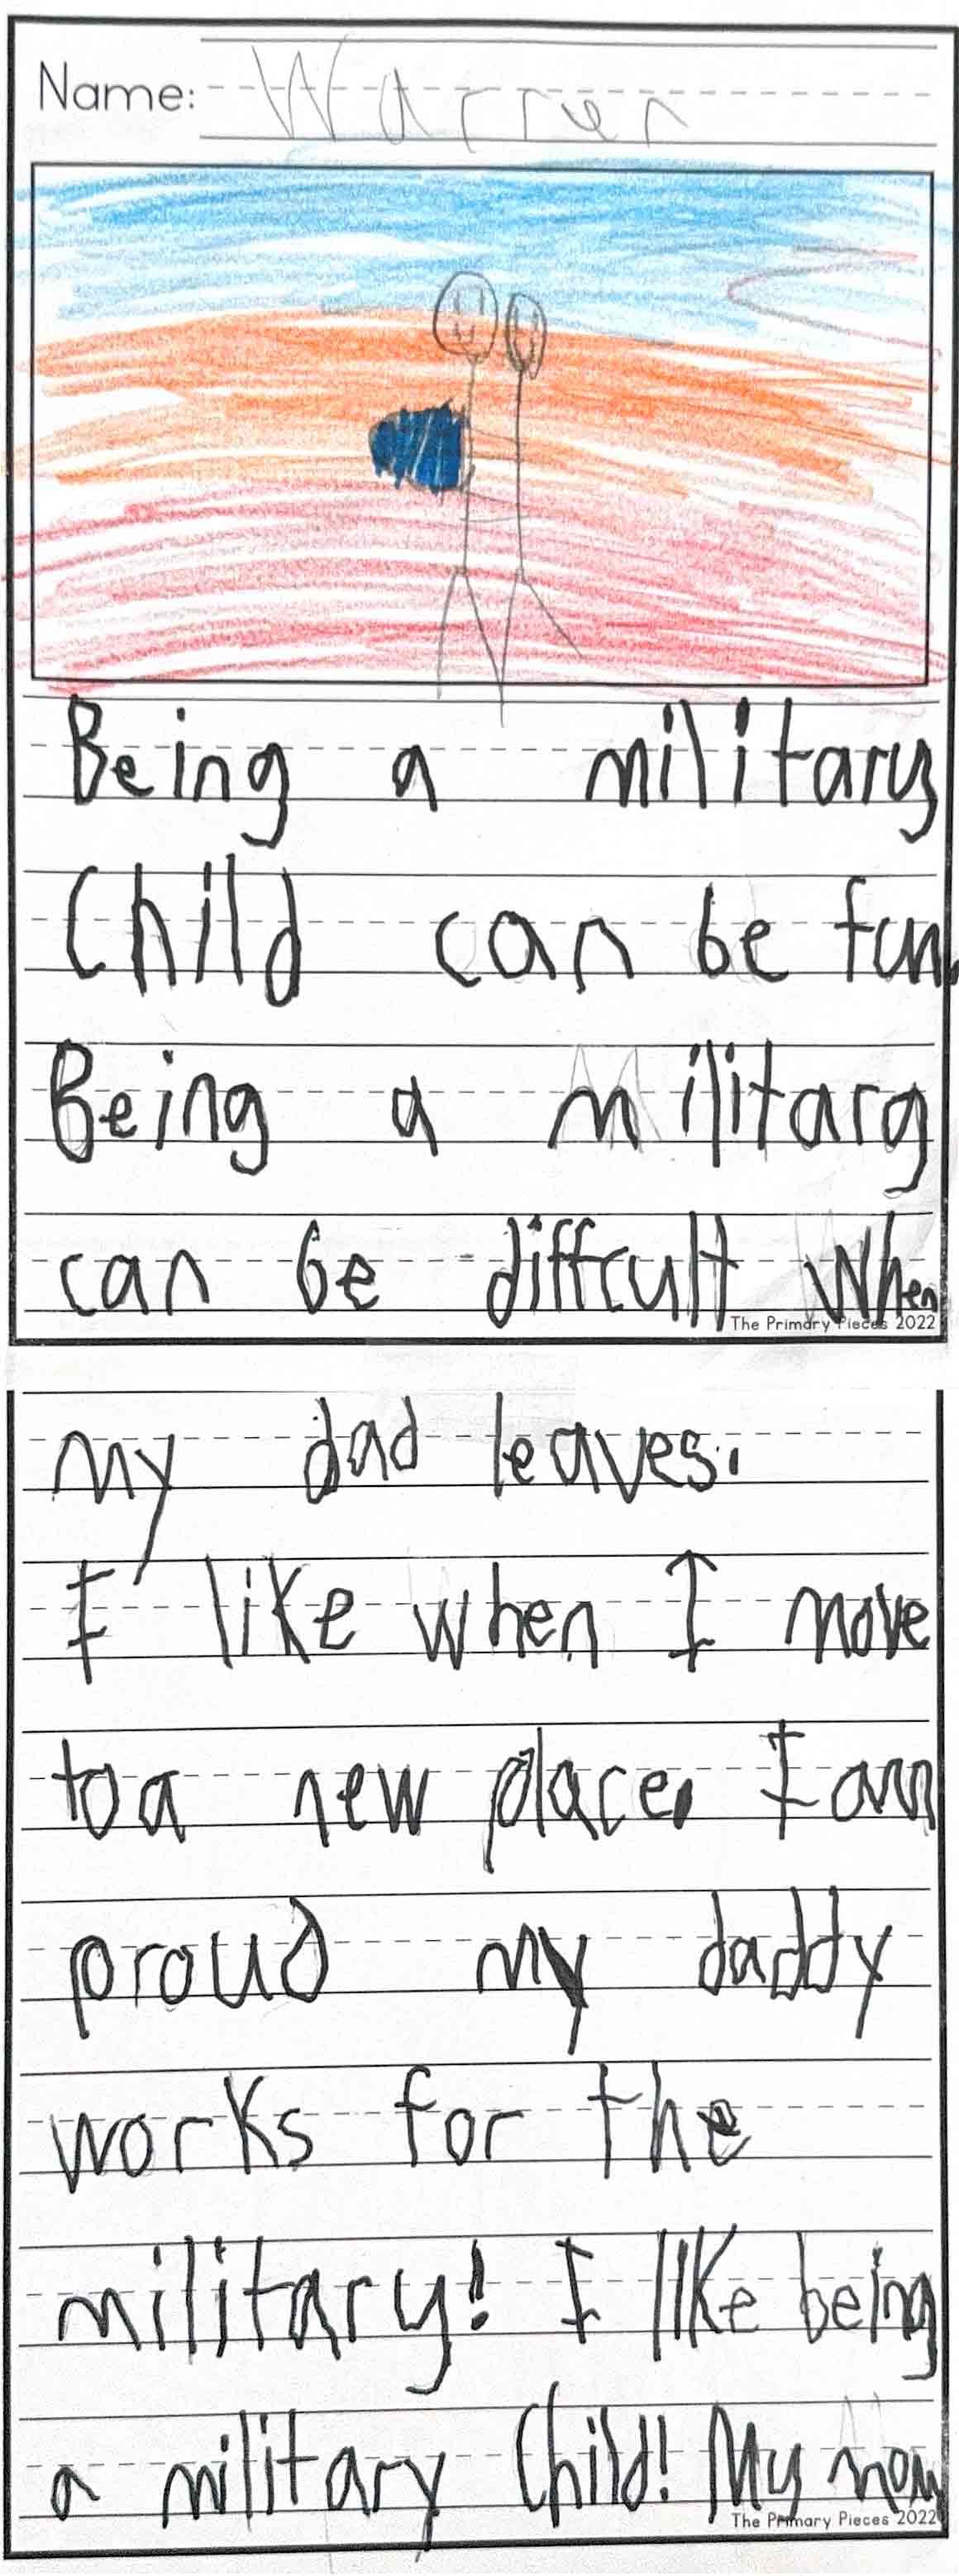 Name: Warren
Being a military
Child can be fun.
Being a military
can be diffcult When
The Primary Pieces 2022
my dad leaves.
I like when I move
to a new place. I am
proud my daddy
works for the
military! I like being
a military Child! My mom
The Primary Pieces 2022